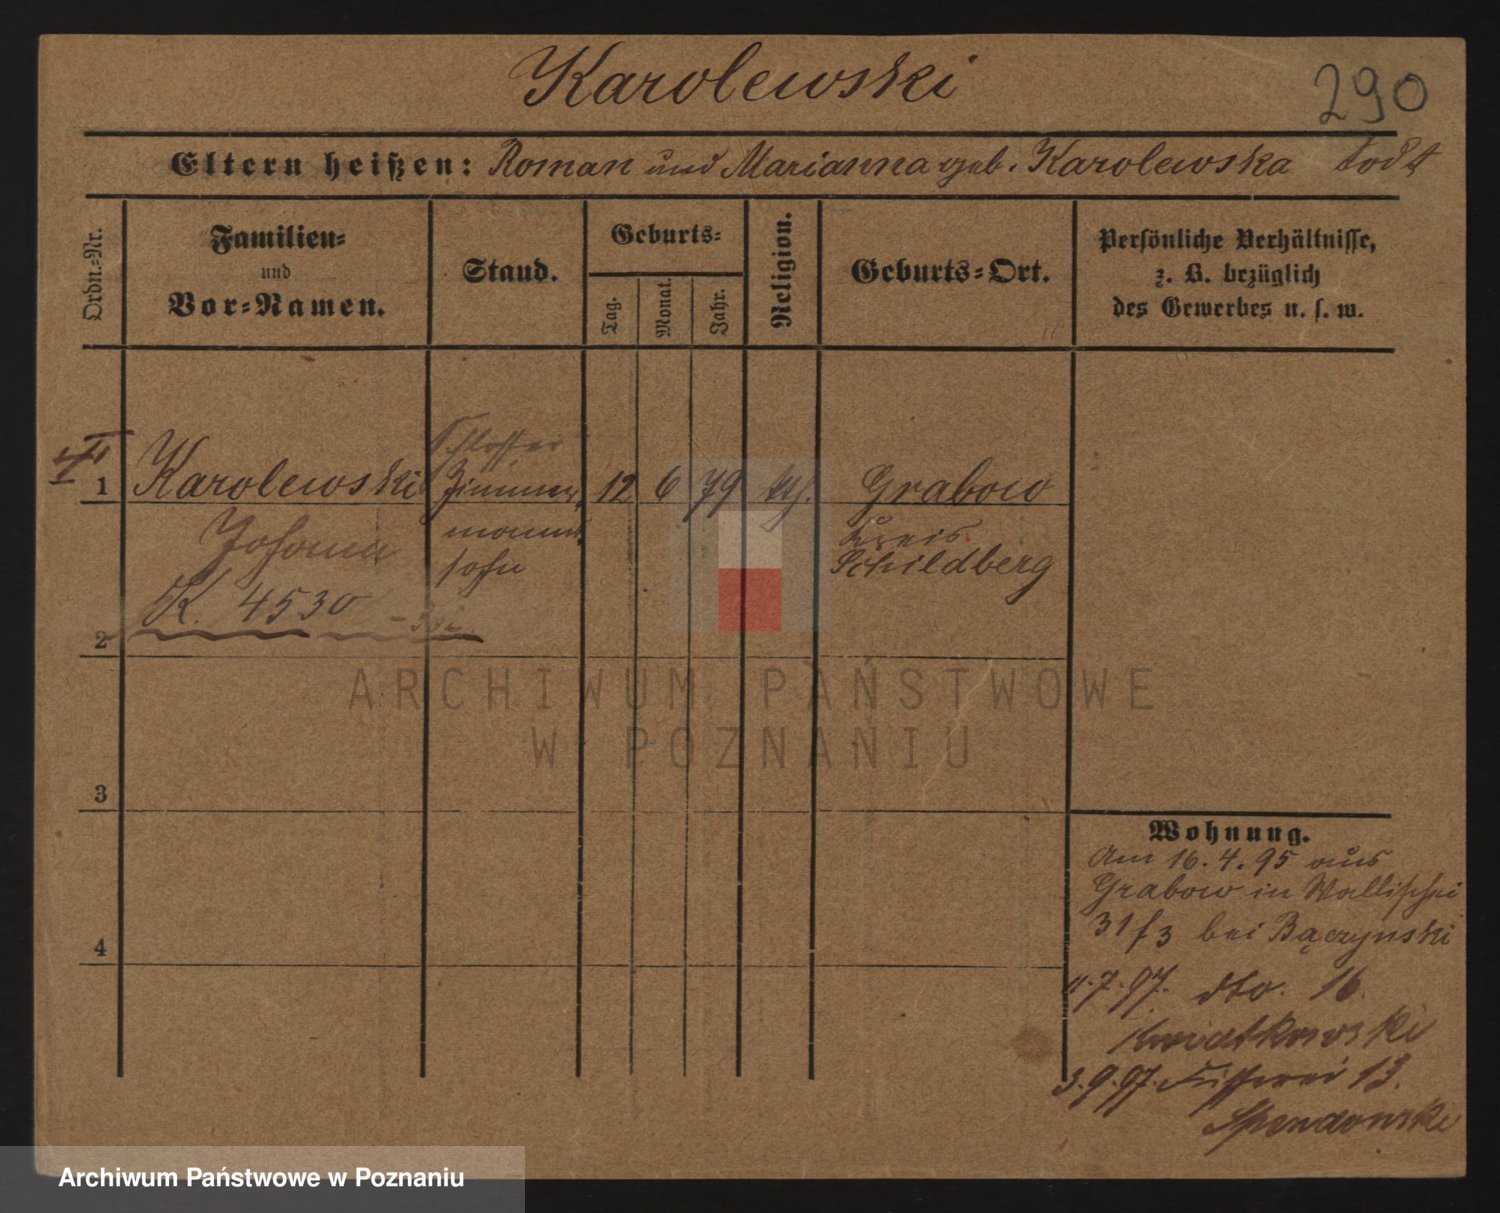 Karolewski
290
Eltern heißen: Roman und Marianna geb. Karolewska todt
Ordn.-Nr.
Familien-
und
Vor-Namen.
Stand.
Geburts-
Tag.
Monat.
Jahr.
Religion.
Geburts-Ort.
Persönliche Verhältnisse,
z. B. bezüglich
des Gewerbes u. s. w.
Schlosser
1 Karolewski Zimmer 12 6 79 kth. Grabow
manns Kreis
sohn Schildberg
K. 4530
2
3
4
Wohnung.
Am 16.4.95 aus
Grabow in Wallischei
31/3 bei Bączynski
11.7.97. dto. 16
Kwiatkowski
3.9.97. 13.
ARCHIWUM PAŃSTWOWE
W POZNANIU
Archiwum Państwowe w Poznaniu